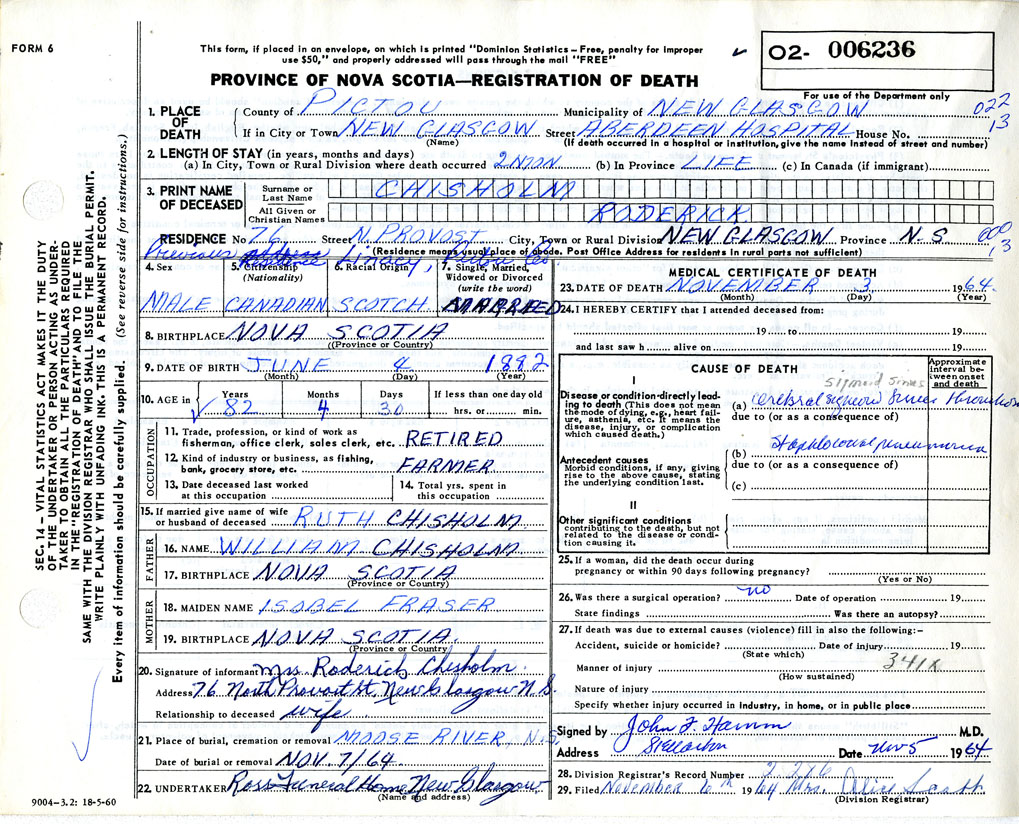 FORM 6
This form, if placed in an envelope, on which is printed "Dominion Statistics – Free, penalty for improper
use $50," and properly addressed will pass through the mail "FREE"
✓ 02- 006236
PROVINCE OF NOVA SCOTIA—REGISTRATION OF DEATH
For use of the Department only
1. PLACE OF DEATH County of PICTOU Municipality of NEW GLASGOW 022
If in City or Town NEW GLASGOW Street ABERDEEN HOSPITAL House No. 13
(Name) (If death occurred in a hospital or institution, give the name instead of street and number)
2. LENGTH OF STAY (in years, months and days)
(a) In City, Town or Rural Division where death occurred 2 MON (b) In Province LIFE (c) In Canada (if immigrant)
3. PRINT NAME OF DECEASED Surname or Last Name CHISHOLM
All Given or Christian Names RODERICK
RESIDENCE No. 76 Street N. PROVOST City, Town or Rural Division NEW GLASGOW Province N.S 000
13
(Residence means usual place of abode. Post Office Address for residents in rural parts not sufficient)
Previous
4. Sex 5. Citizenship (Nationality) 6. Racial Origin 7. Single, Married, Widowed or Divorced (write the word)
MALE CANADIAN SCOTCH MARRIED
8. BIRTHPLACE NOVA SCOTIA
(Province or Country)
9. DATE OF BIRTH JUNE 4 1882
(Month) (Day) (Year)
10. AGE in Years Months Days If less than one day old
✓ 82 4 30 hrs. or min.
OCCUPATION
11. Trade, profession, or kind of work as
fisherman, office clerk, sales clerk, etc. RETIRED
12. Kind of industry or business, as fishing,
bank, grocery store, etc. FARMER
13. Date deceased last worked at this occupation 14. Total yrs. spent in this occupation
15. If married give name of wife
or husband of deceased RUTH CHISHOLM
FATHER
16. NAME WILLIAM CHISHOLM
17. BIRTHPLACE NOVA SCOTIA
(Province or Country)
MOTHER
18. MAIDEN NAME ISOBEL FRASER
19. BIRTHPLACE NOVA SCOTIA
(Province or Country)
20. Signature of informant Mrs Roderick Chisholm.
Address 76 North Provost St, New Glasgow N.S.
Relationship to deceased wife
21. Place of burial, cremation or removal MOOSE RIVER, N.S.
Date of burial or removal NOV. 7/64
22. UNDERTAKER Ross Funeral Home New Glasgow
(Name and address)
9004-3.2: 18-5-60
MEDICAL CERTIFICATE OF DEATH
23. DATE OF DEATH NOVEMBER 3 1964
(Month) (Day) (Year)
24. I HEREBY CERTIFY that I attended deceased from:
19 to 19
and last saw h alive on 19
CAUSE OF DEATH
Approximate interval between onset and death
I
Sigmoid Sinus
Disease or condition directly leading to death (This does not mean the mode of dying, e.g., heart failure, asthenia, etc. It means the disease, injury, or complication which caused death.)
(a) Cerebral sigmoid Sinus
due to (or as a consequence of)
Antecedent causes
Morbid conditions, if any, giving rise to the above cause, stating the underlying condition last.
(b) pneumonia
due to (or as a consequence of)
(c)
II
Other significant conditions
contributing to the death, but not related to the disease or condition causing it.
25. If a woman, did the death occur during
pregnancy or within 90 days following pregnancy?
(Yes or No)
26. Was there a surgical operation? no Date of operation 19
State findings Was there an autopsy?
27. If death was due to external causes (violence) fill in also the following:–
Accident, suicide or homicide? Date of injury 19
(State which) 341X
Manner of injury
(How sustained)
Nature of injury
Specify whether injury occurred in industry, in home, or in public place
Signed by John F. Hamm M.D.
Address Stellarton Date Nov 5 1964
28. Division Registrar's Record Number
29. Filed November 6th 1964 Mrs. Alice Scott
(Division Registrar)
SEC. 14 – VITAL STATISTICS ACT MAKES IT THE DUTY
OF THE UNDERTAKER OR PERSON ACTING AS UNDER-
TAKER TO OBTAIN ALL THE PARTICULARS REQUIRED
IN THE "REGISTRATION OF DEATH" AND TO FILE THE
SAME WITH THE DIVISION REGISTRAR WHO SHALL ISSUE THE BURIAL PERMIT.
WRITE PLAINLY WITH UNFADING INK. THIS IS A PERMANENT RECORD.
Every item of information should be carefully supplied. (See reverse side for instructions.)